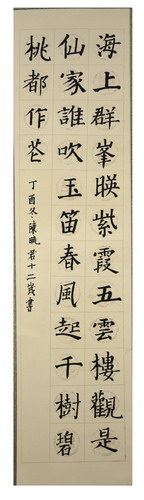 海上群峯暎紫霞五雲樓觀是
仙家誰吹玉笛春風起千樹碧
桃都作花
丁酉冬陳曉君十二歲書